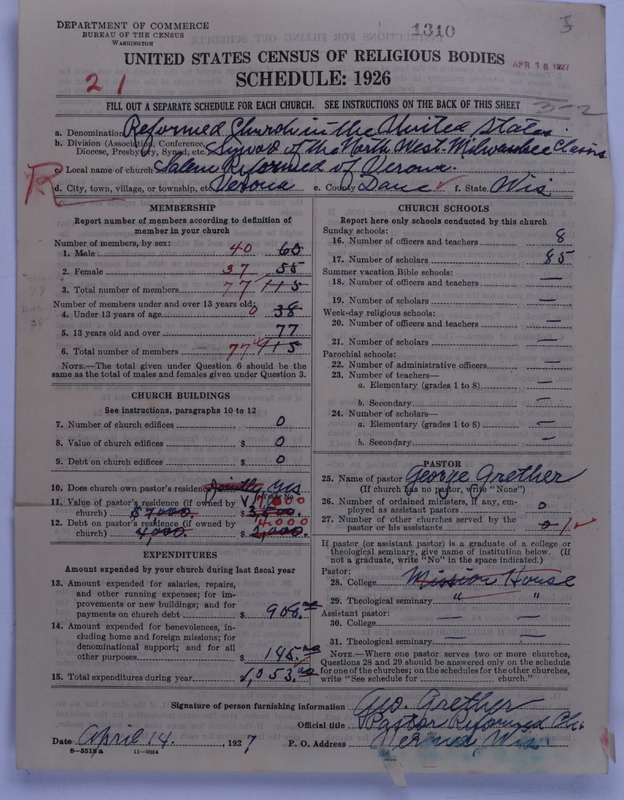 DEPARTMENT OF COMMERCE
BUREAU OF THE CENSUS
WASHINGTON
1310
UNITED STATES CENSUS OF RELIGIOUS BODIES
APR 16 1927
SCHEDULE: 1926
21
FILL OUT A SEPARATE SCHEDULE FOR EACH CHURCH. SEE INSTRUCTIONS ON THE BACK OF THIS SHEET
a. Denomination Reformed Church in the United States.
b. Division (Association, Conference, Diocese, Presbytery, Synod, etc.) Synod of the North West-Milwaukee Classis
c. Local name of church Salem Reformed of Verona.
d. City, town, village, or township, etc. Verona e. County Dane f. State Wis
MEMBERSHIP
Report number of members according to definition of
member in your church
Number of members, by sex:
1. Male 40 60
2. Female 37 55
3. Total number of members 77 115
Number of members under and over 13 years old:
4. Under 13 years of age 0 38
5. 13 years old and over 77
6. Total number of members 77 115
NOTE.—The total given under Question 6 should be
the same as the total of males and females given under Question 3.
CHURCH BUILDINGS
See instructions, paragraphs 10 to 12
7. Number of church edifices 0
8. Value of church edifices $ 0
9. Debt on church edifices $ 0
10. Does church own pastor's residence Jointly yes
11. Value of pastor's residence (if owned by
church) $7000. 7,000 3,500.
12. Debt on pastor's residence (if owned by
church) 4,000. 4,000 2,000.
EXPENDITURES
Amount expended by your church during last fiscal year
13. Amount expended for salaries, repairs,
and other running expenses; for im-
provements or new buildings; and for
payments on church debt $ 908.00
14. Amount expended for benevolences, in-
cluding home and foreign missions; for
denominational support; and for all
other purposes $ 145.00
15. Total expenditures during year $ 1,053.00
CHURCH SCHOOLS
Report here only schools conducted by this church
Sunday schools:
16. Number of officers and teachers 8
17. Number of scholars 85
Summer vacation Bible schools:
18. Number of officers and teachers —
19. Number of scholars —
Week-day religious schools:
20. Number of officers and teachers —
21. Number of scholars —
Parochial schools:
22. Number of administrative officers —
23. Number of teachers—
a. Elementary (grades 1 to 8) —
b. Secondary —
24. Number of scholars—
a. Elementary (grades 1 to 8) —
b. Secondary —
PASTOR
25. Name of pastor George Grether
(If church has no pastor, write "None")
26. Number of ordained ministers, if any, em-
ployed as assistant pastors 0
27. Number of other churches served by the
pastor or his assistants 0 1
If pastor (or assistant pastor) is a graduate of a college or
theological seminary, give name of institution below. (If
not a graduate, write "No" in the space indicated.)
Pastor:
28. College Mission House
29. Theological seminary " "
Assistant pastor:
30. College — —
31. Theological seminary — —
NOTE.—Where one pastor serves two or more churches,
Questions 28 and 29 should be answered only on the schedule
for one of the churches; on the schedules for the other churches,
write "See schedule for church."
Signature of person furnishing information Geo. Grether
Official title Pastor Reformed Ch.
Date April 14. , 1927, P. O. Address Verona, Wis.
8—5518a 11—9954